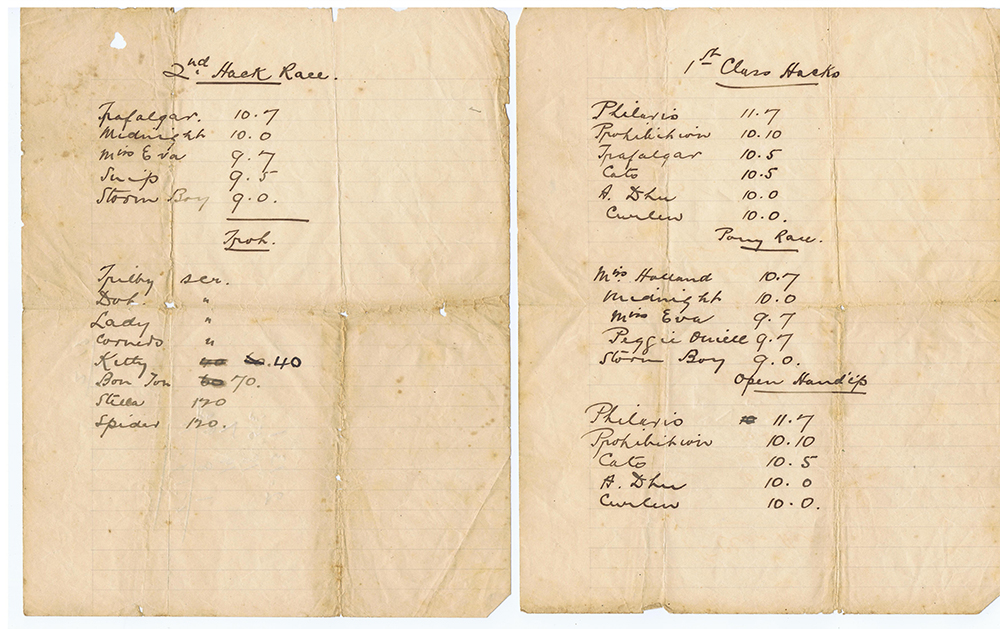 2nd Hack Race.
Trafalgar. 10.7
Midnight 10.0
Miss Eva 9.7
Snip 9.5
Storm Boy 9.0.
Troh.
Trilby scr.
Dot. "
Lady "
Corneto "
Kitty 40
Bon Ton 70.
Stella 120
Spider 120.
1st Class Hacks
Philario 11.7
Prohibition 10.10
Trafalgar 10.5
Cato 10.5
A. Dhu 10.0
Curlew 10.0.
Pony Race.
Miss Holland 10.7
Midnight 10.0
Miss Eva 9.7
Peggie Oneill 9.7
Storm Boy 9.0.
Open Hand'ip
Philario 11.7
Prohibition 10.10
Cato 10.5
A. Dhu 10.0
Curlew 10.0.